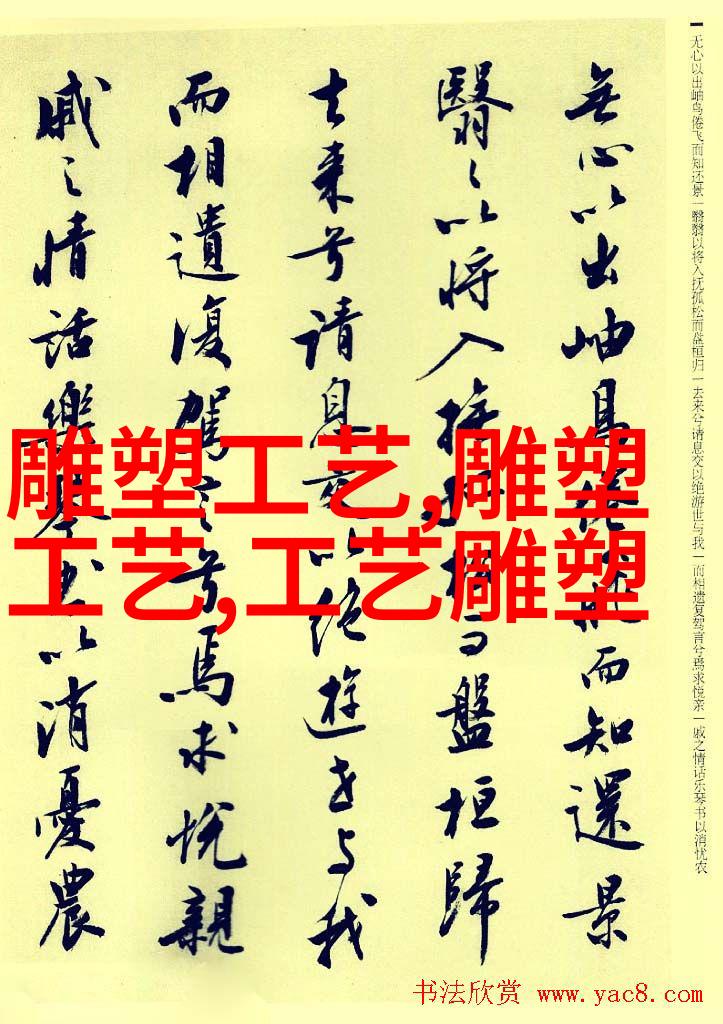 无心以出岫鸟倦飞而知还景一翳翳以将入抚孤松而盘桓归一去来兮请息交以绝游世与我一而相遗复驾言兮焉求悦亲一戚之情话乐琴书以消忧农
無心以出岫鳥倦飛而知還景
翳々以将入撫孤松而盤桓歸
去来兮请息交以绝遊世与我
而相遺復駕言兮焉求悦親
戚之情話樂琴書以消憂農
雕塑工艺,雕塑
工艺,工艺雕塑
书法欣赏 www.yac8.com